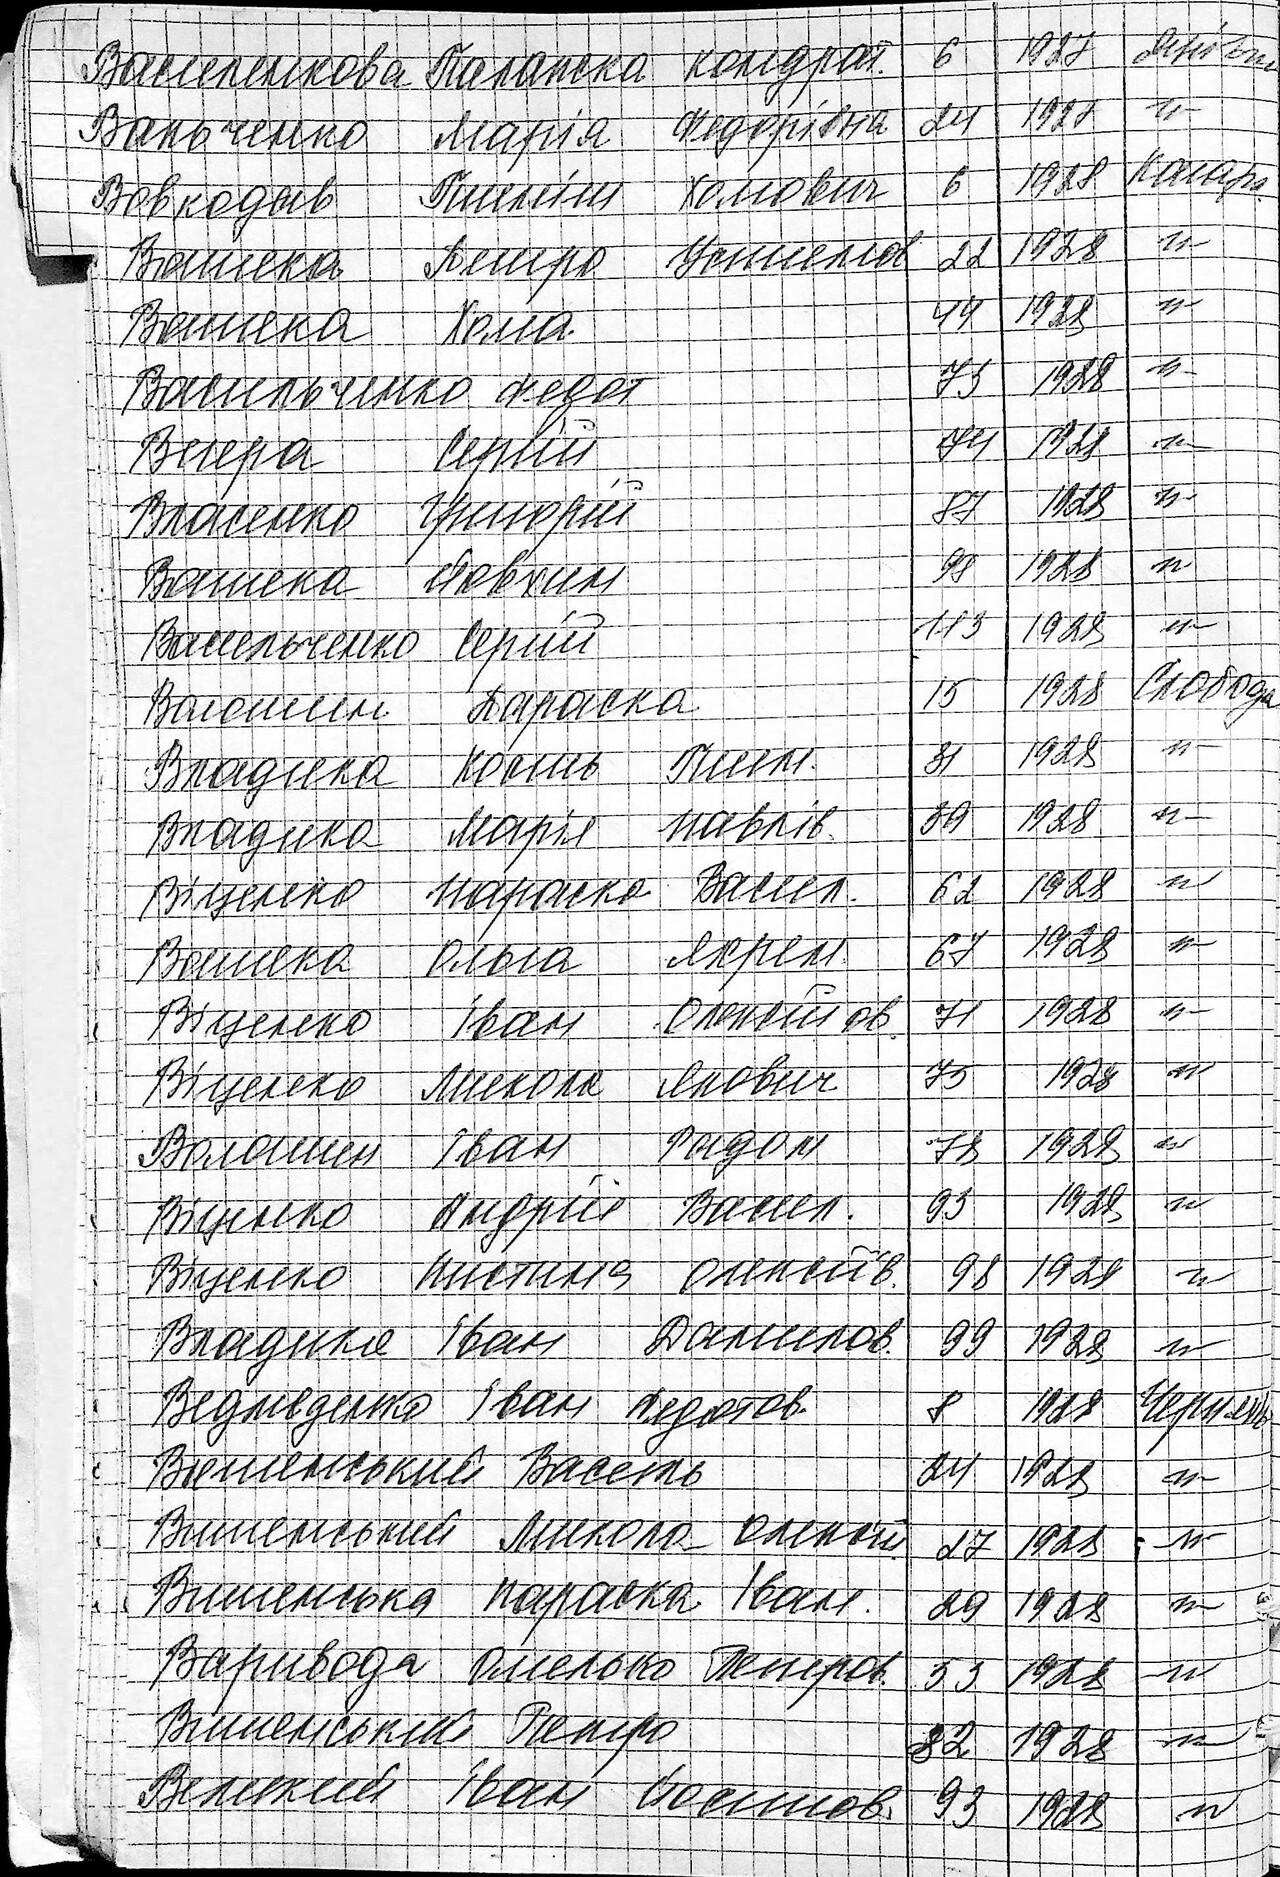 Василенкова Палажка Кондрат. 6 1927
Вольченко Марія Федорівна 24 1927 -"-
Вовкодав Пилип Хомович 6 1928
Вашека Петро Устимов 22 1928 -"-
Вашека Хома 44 1928 -"-
Васильченко Федот 75 1928 -"-
Вечера Сергій 74 1928 -"-
Власенко Григорій 87 1928 -"-
Вашека Явхим 98 1928 -"-
Васильченко Сергій 113 1928 -"-
Волошин Параска 15 1928 Слобода
Владика Кость Пилип. 31 1928 -"-
Владика Марія Павлів. 39 1928 -"-
Віценко Параска Васил. 62 1928 -"-
Вашека Ольга Яхрем. 67 1928 -"-
Віценко Іван Олексійов. 71 1928 -"-
Віценко Микола Якович 75 1928 -"-
Волошин Іван Радом 78 1928 -"-
Віценко Андрій Васил. 93 1928 -"-
Віценко Христина Олексіїв. 98 1928 -"-
Владика Іван Данилов. 99 1928 -"-
Ведмеденко Іван Федотов. 8 1928
Вишенський Василь 24 1928 -"-
Вишенський Микола Олексій. 27 1928 -"-
Вишенська Параска Іван. 29 1928 -"-
Варивода Омелько Петров. 53 1928 -"-
Вишенський Петро 82 1928 -"-
Великий Іван Йосипов. 93 1928 -"-